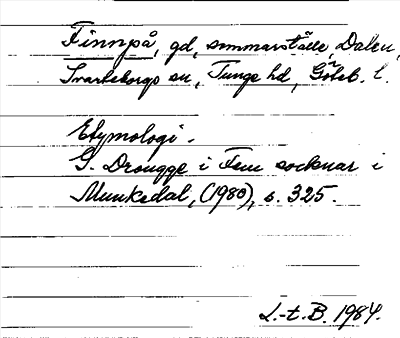 Finnpå, gd, sommarställe, Dalen,
Svarteborgs sn, Tunge hd, Göteb. l.
Etymologi.
G. Drougge i Fem socknar i
Munkedal, (1980), s. 325.
L.-t. B. 1984.